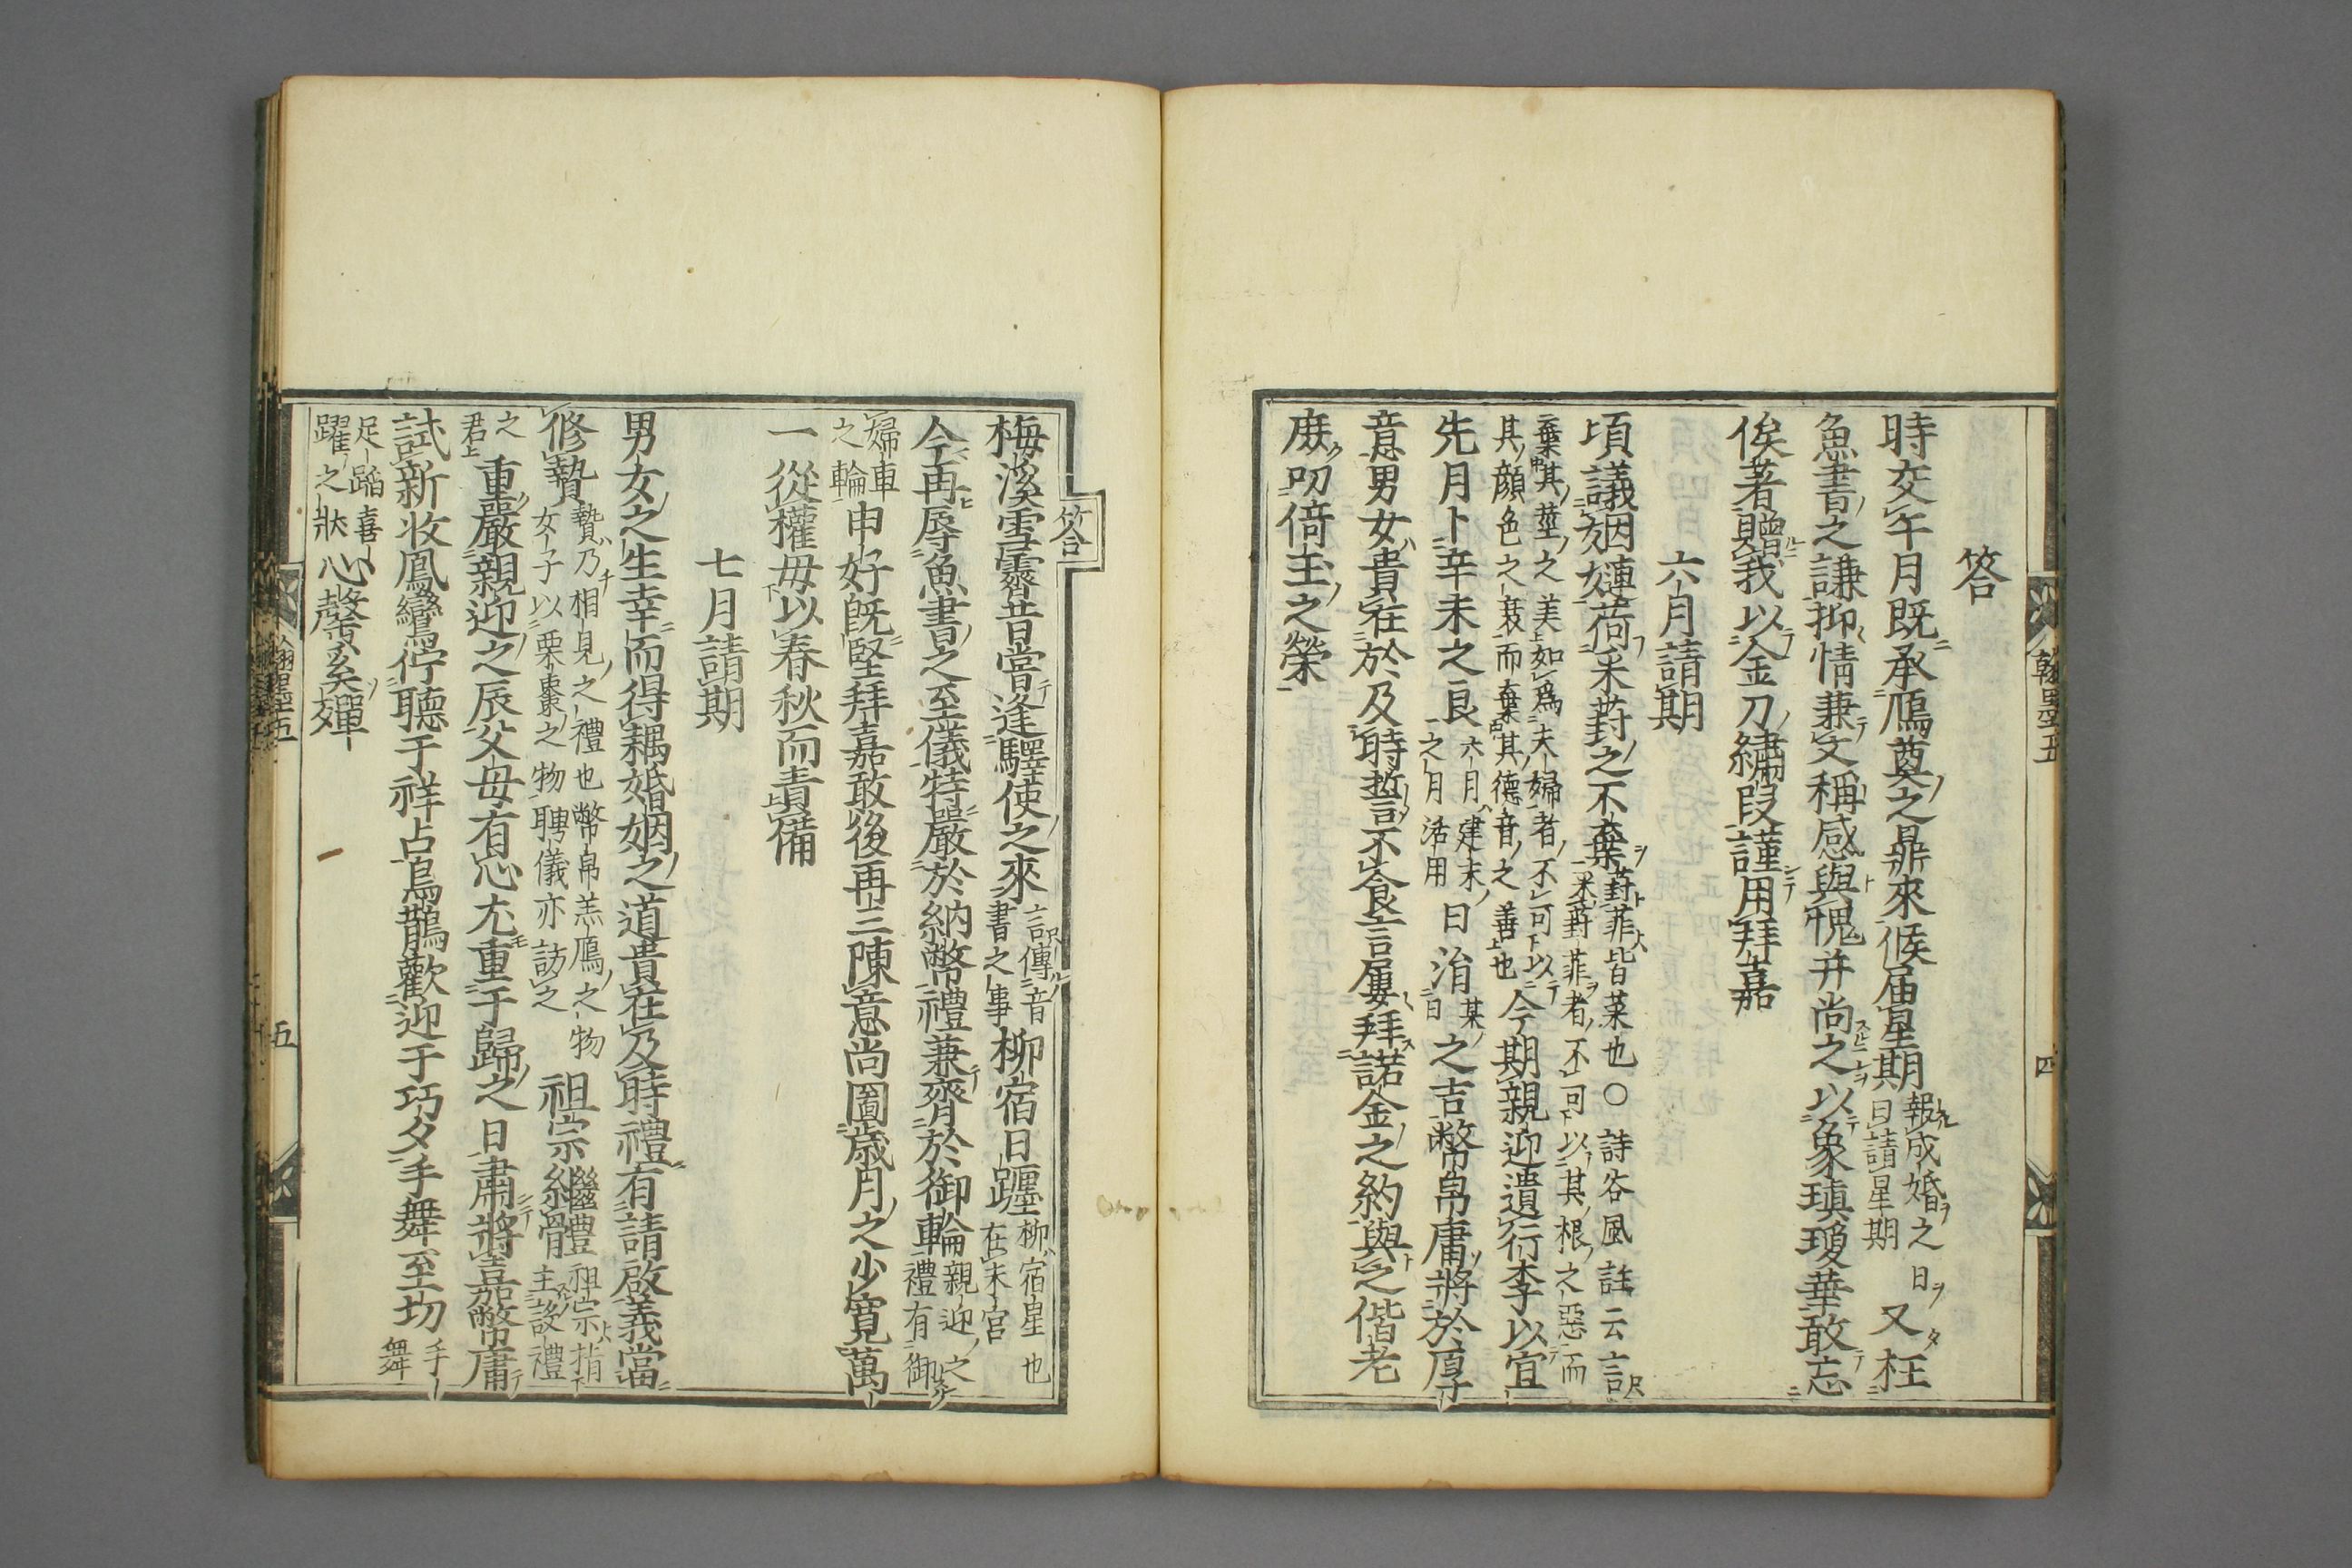 答
時交午月既承鴈奠之鼎來候届星期報成婚之日日請星期又枉
魚書之謙抑情兼文稱感與愧并尚之以象瑱瓊華敢忘
俟著贈我以金刀繡段謹用拜嘉
六月請期
頃議姻嫜荷采葑之不棄葑菲皆菜也○詩谷風註云言采葑菲者不可以其根之惡而
棄其莖之美如爲夫婦者不可以其顔色之衰而棄其德音之善也今期親迎遣行李以宜
先月卜辛未之良六月建未之月活用日涓某日之吉幣帛庸將於厚
意男女貴在於及時誓不食言屢拜諾金之約與之偕老
庶叨倚玉之榮
翰墨五
四
答
梅溪雪霽昔當逢驛使之來言傳音書之事柳宿日躔柳宿星也在未宮
今再辱魚書之至儀特嚴於納幣禮兼齊於御輪親迎之禮有御
婦車之輪申好旣堅拜嘉敢後再三陳意尚圖歲月之少寬萬
一從權毋以春秋而責備
七月請期
男女之生幸而得耦婚姻之道貴在及時禮有請啟義當
修贄贄乃相見之禮也幣帛羔鴈之物女子以栗棗之物聘儀亦訪之祖宗繼體祖宗指主設禮
之君重嚴親迎之辰父毋有心尢重于歸之日肅將嘉幣庸
試新收鳳鸞佇聽于祥占烏鵲歡迎于巧夕手舞至切手舞
足蹈喜躍之狀心馨奚殫
翰墨五
五